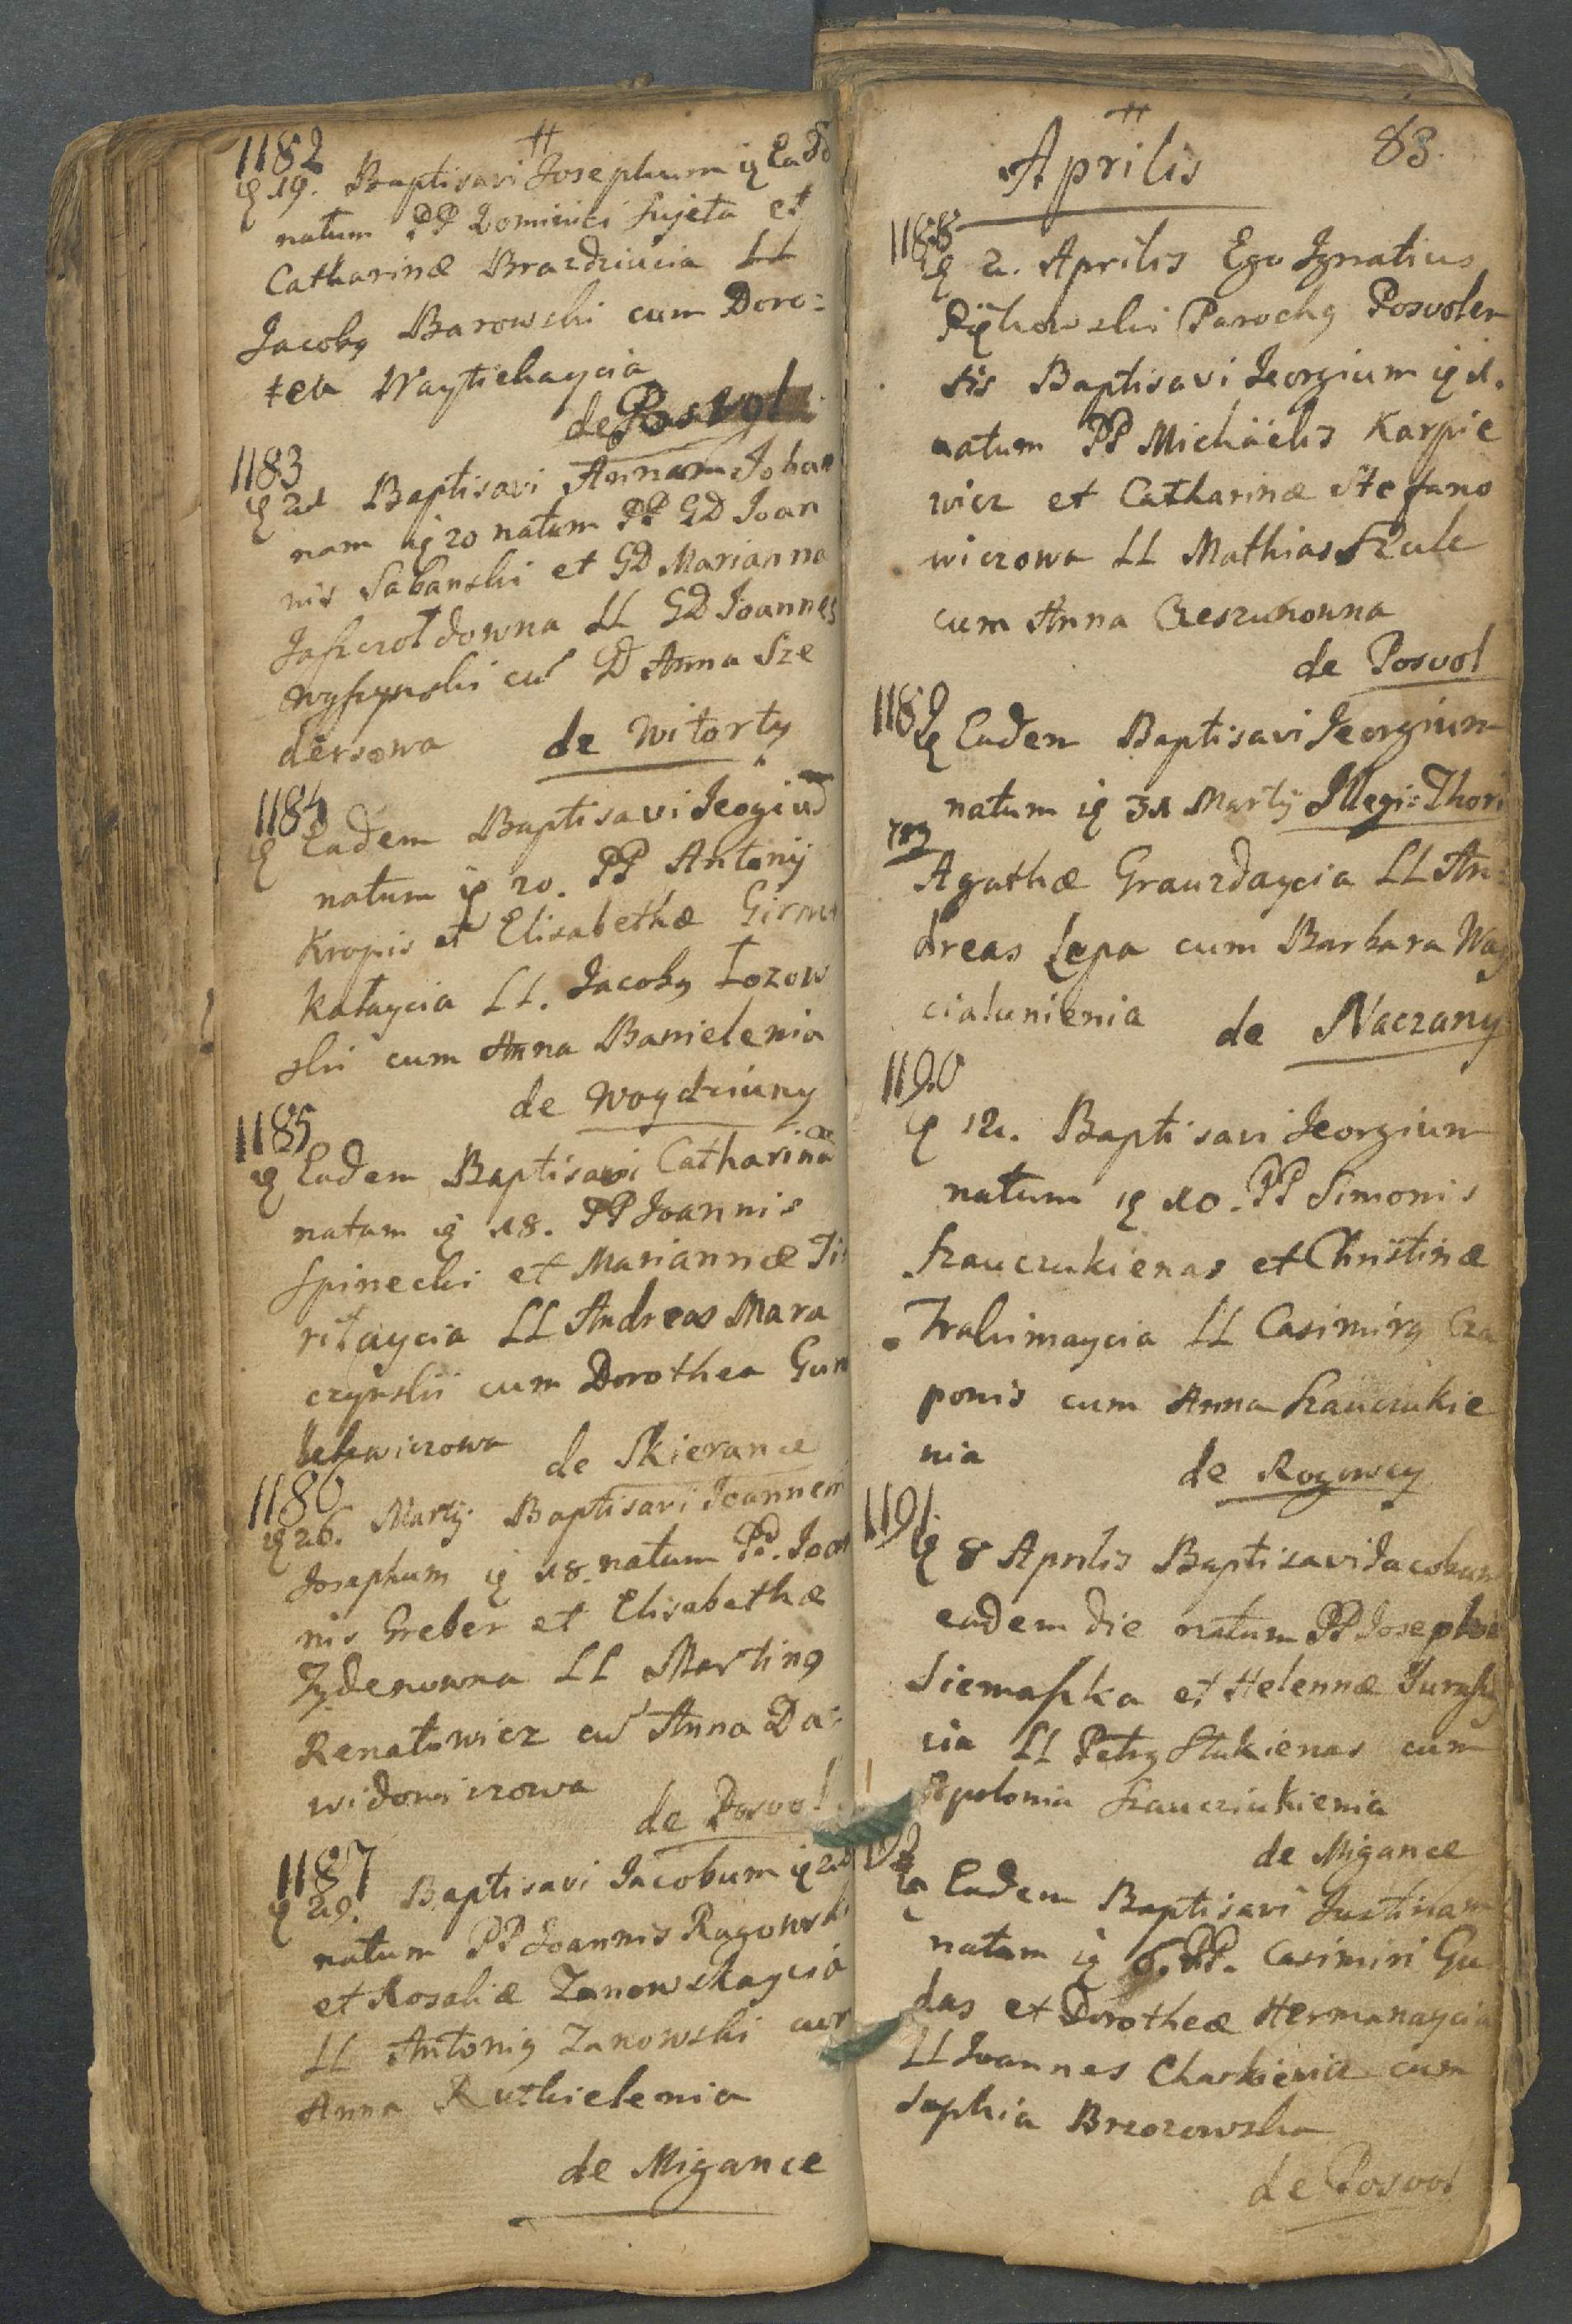 1182
19. Baptisavi Josephum Ead
natum PP Dominici Sujeta et
Catharinæ Brazdziucia LL
Jacobg Barowski cum Doro=
tea Waytiekaycia
de Posvol
1183
21 Baptisavi Annam Johan
nam 20 natam PP GD Joan
nis Sabanski et GD Marianna
Jaszczołdowna LL GD Joannes
Wyszynski cum D Anna Sze
dersowa de Witorty
1184
Eadem Baptisavi Jeogiu
natum 20. PP Antonij
Kropis et Elisabethæ Girnu
kataycia LL. Jacobg Łozow
ski cum Anna Banielenia
de Woydziuny
1185
Eadem Baptisavi Catharina
natam 18. PP Joannis
Spinecki et Mariannæ Ti
ritaycia LL Andreas Mara
czynski cum Dorothea Gun
de Skierance
1186
26. Martij Baptisavi Joannem
Josephum 18. natum PP. Joan
nis Greber et Elisabethæ
Zydenowna LL Marting
Renatowicz cum Anna Da=
widowiczowa
de Posvol
1187
29. Baptisavi Jacobum
natum PP Joannis Ragowski
et Rosaliæ Zanowskaycia
LL Antonig Zanowski cum
Anna Ruthielenia
de Migance
Aprilis 83.
1188
2. Aprilis Ego Ignatius
Parochg Posvolen
sis Baptisavi Jeorgium 1.
natum PP Michäelis Karpie
wicz et Catharinæ Stefano
wiczowa LL Mathias Szule
cum Anna Czeszunowna
de Posvol
1189
Eadem Baptisavi Jeorgium
natum 31 Martij Illegi: Thori
Agathæ Grauzdaycia LL An=
dreas Łepa cum Barbara Way
cialunienia de Naczany
1190
12. Baptisavi Jeorgium
natum 10. PP Simonis
Szauczukienas et Christinæ
Trakimaycia LL Casimirg Cza
ponis cum Anna Szauczukie
nia de Rogowcy
1191
8 Aprilis Baptisavi Jacobum
eadem die natum PP Josephi
Siemaszka et Helennæ Jurasz
cia LL Petrg Stukienas cum
Apolonia Szaucziukienia
de Migance
Eadem Baptisavi Justinam
natam 6. PP. Casimiri Gu
das et Dorotheæ Hermanaycia
LL Joannes Charkiewicz cum
Sophia Brzozowska
de Posvol